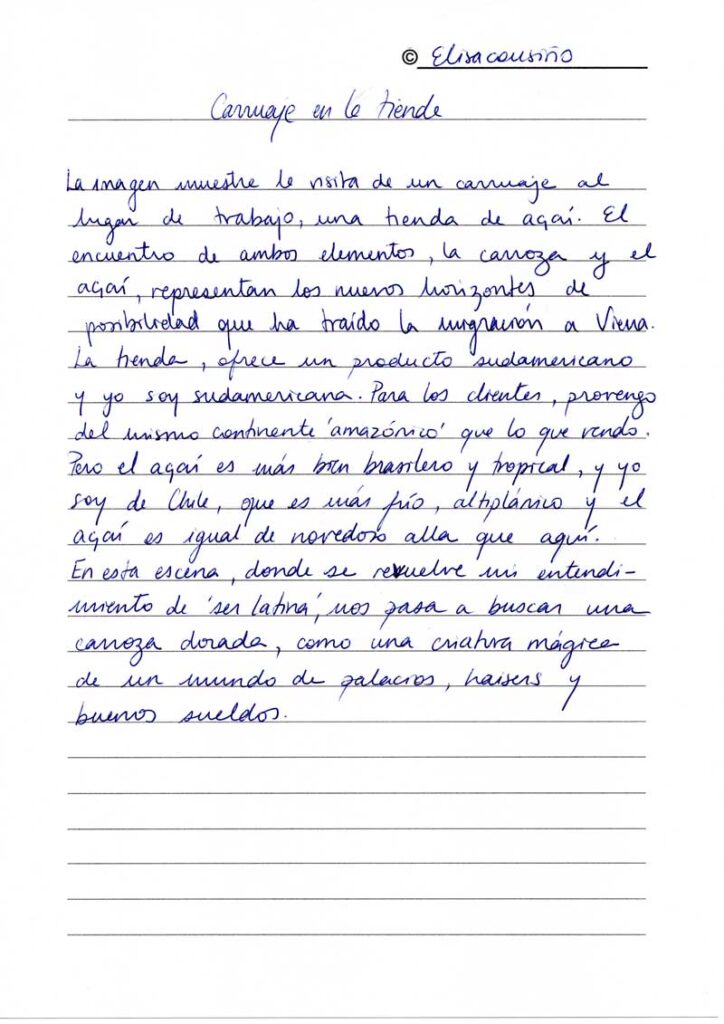 © Elisa cousiño
Carruaje en la tienda
La imagen muestra la visita de un carruaje al
lugar de trabajo, una tienda de açaí. El
encuentro de ambos elementos, la carroza y el
açaí, representan los nuevos horizontes de
posibilidad que ha traído la migración a Viena.
La tienda, ofrece un producto sudamericano
y yo soy sudamericana. Para los clientes, provengo
del mismo continente 'amazónico' que lo que vendo.
Pero el açaí es más bien brasilero y tropical, y yo
soy de Chile, que es más frío, altiplánico y el
açaí es igual de novedoso alla que aquí.
En esta escena, donde se revuelve mi entendi-
miento de 'ser latina', nos pasa a buscar una
carroza dorada, como una criatura mágica
de un mundo de palacios, kaisers y
buenos sueldos.